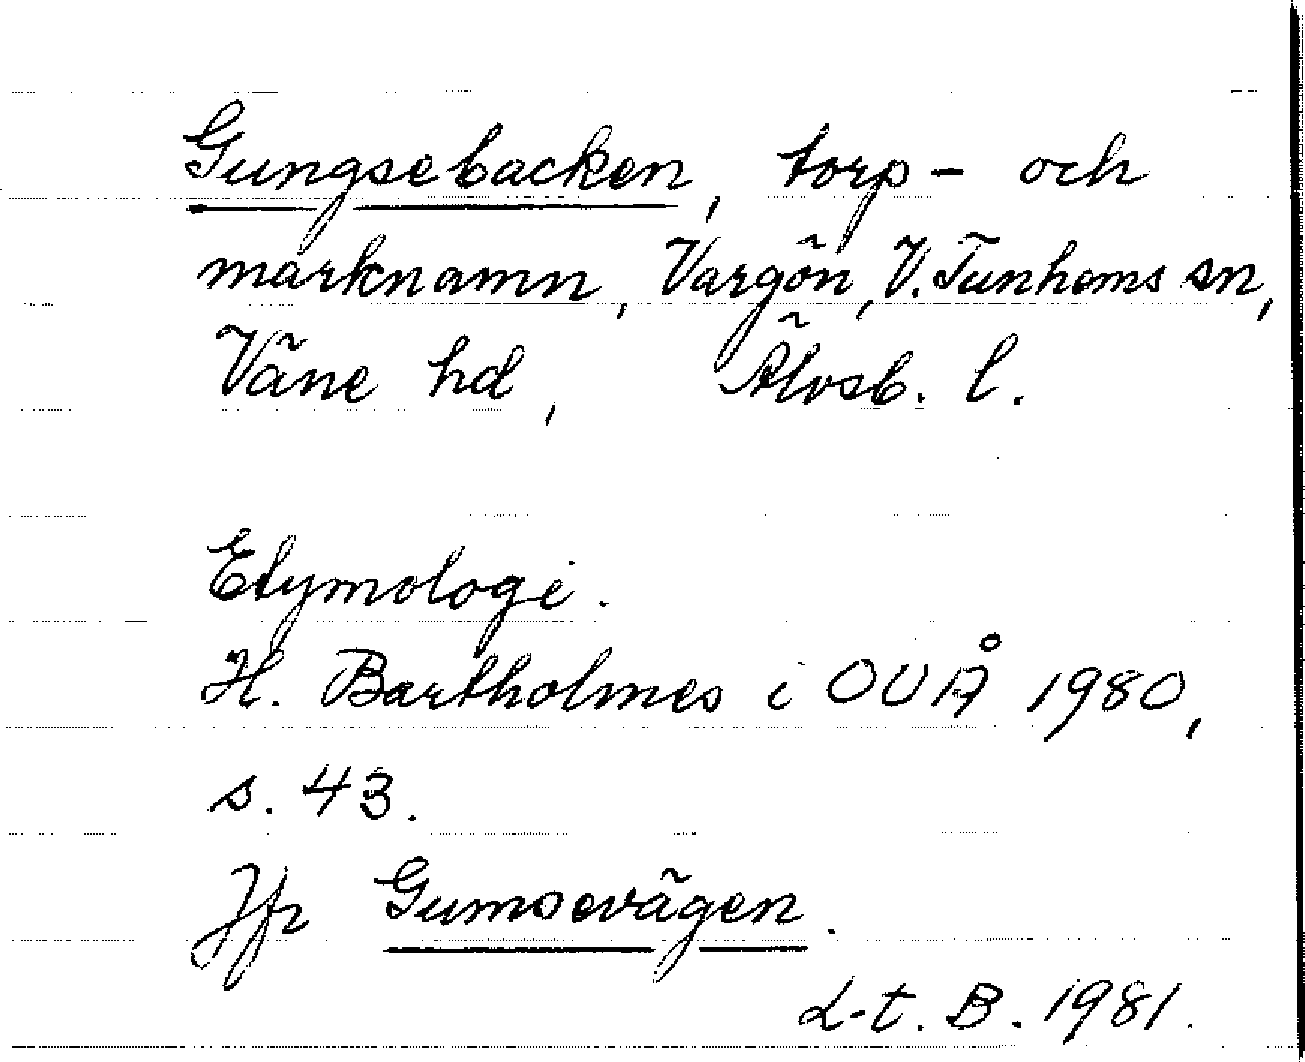 Gungsebacken, torp- och
marknamn, Vargön, V. Tunhems sn,
Väne hd, Älvsb. l.
Etymologi.
H. Bartholmes i OUÅ 1980,
s. 43.
Jfr Gumsevägen.
L-t. B. 1981.